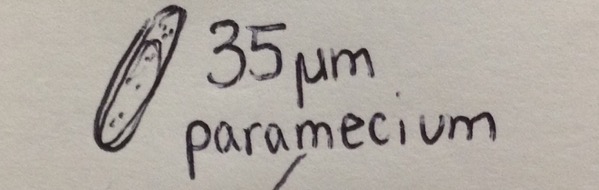 35 µm
paramecium